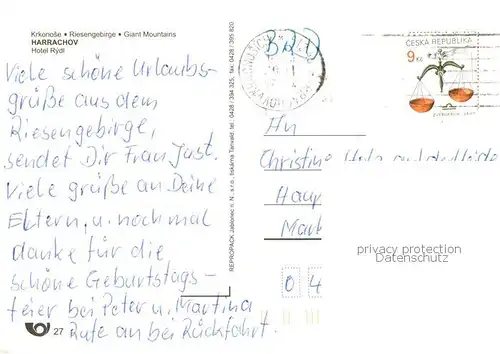 Krkonoše • Riesengebirge • Giant Mountains
HARRACHOV
Hotel Rýdl
Viele schöne Urlaubs-
grüße aus dem
Riesengebirge,
sendet Dir Frau Just.
Viele grüße an Deine
Eltern, u. nochmal
danke für die
schöne Geburtstags-
feier bei Peter u. Martina
Rufe an bei Rückfahrt.
27
REPROPACK Jablonec n. N., s.r.o., tiskárna Tanvald, tel. 0428/394 325, fax. 0428/395 820
BRD
ČESKÁ REPUBLIKA
9 Kč
An
Christine
Haup
Mark
privacy protection
Datenschutz
04